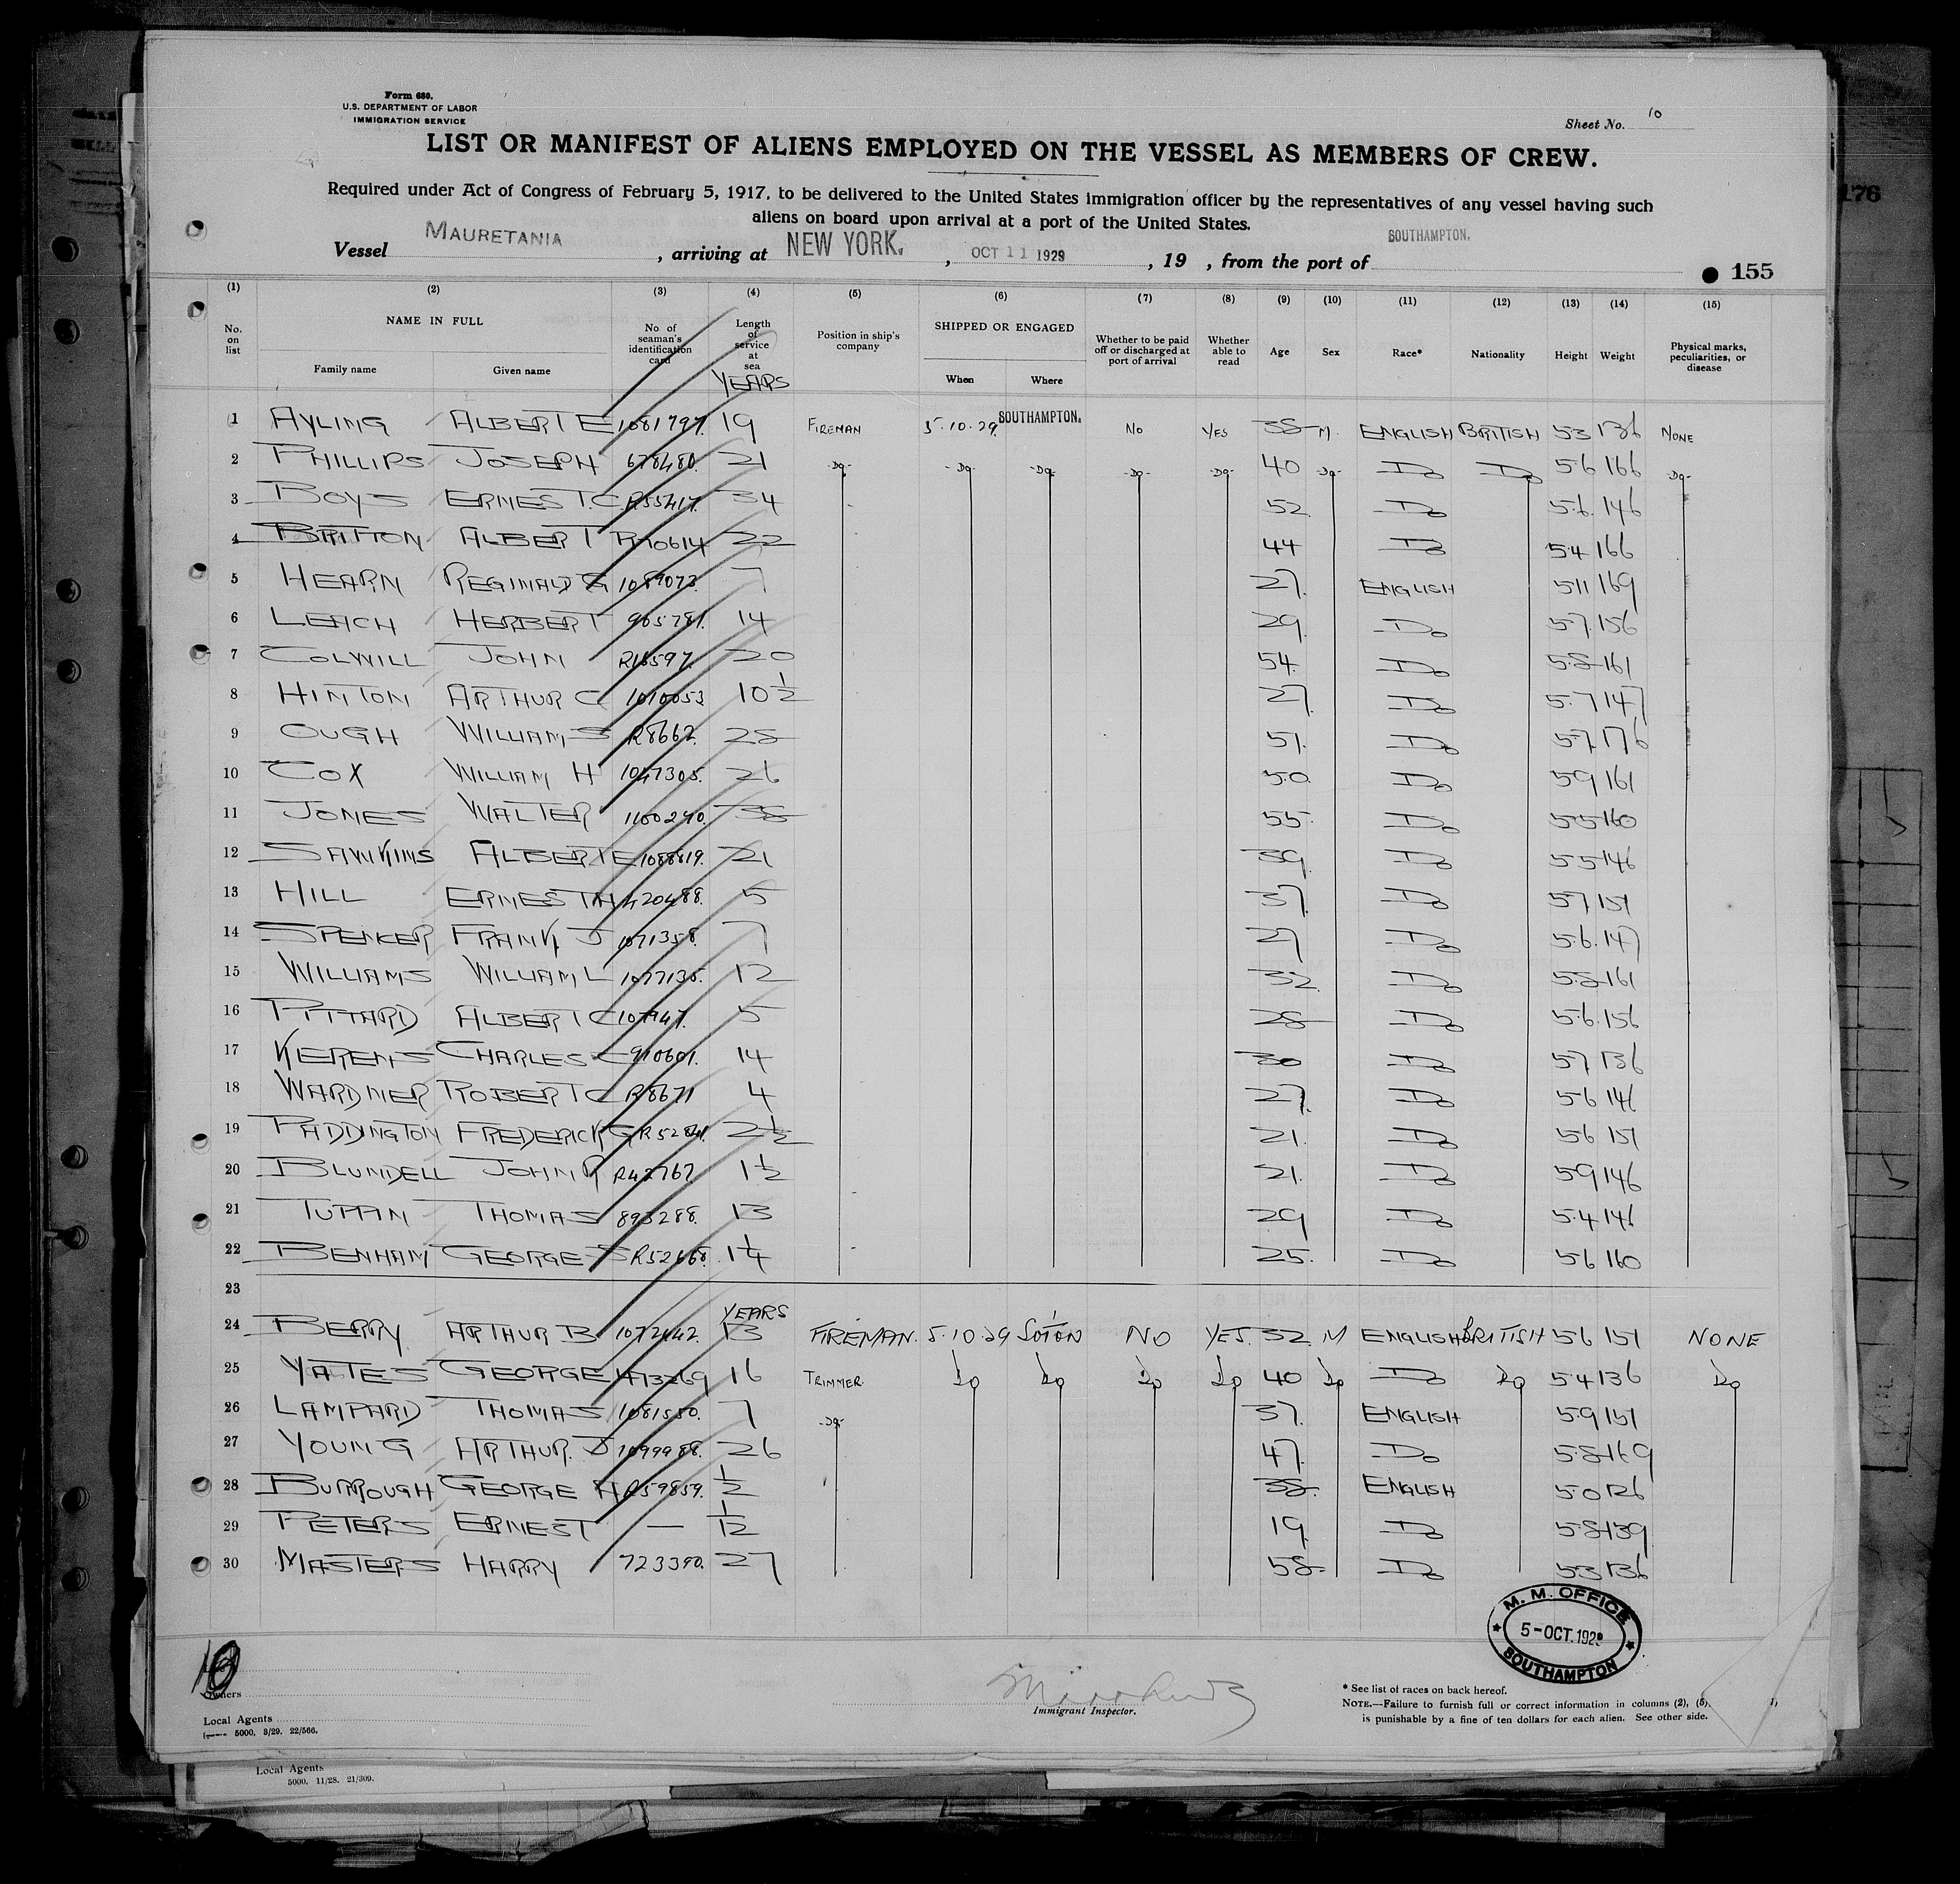 Form 680.
U.S. DEPARTMENT OF LABOR
IMMIGRATION SERVICE
Sheet No. 10
LIST OR MANIFEST OF ALIENS EMPLOYED ON THE VESSEL AS MEMBERS OF CREW.
Required under Act of Congress of February 5, 1917, to be delivered to the United States immigration officer by the representatives of any vessel having such
aliens on board upon arrival at a port of the United States.
176
Vessel MAURETANIA, arriving at NEW YORK., OCT 11 1929, 19 , from the port of SOUTHAMPTON.
155
(1) (2) (3) (4) (5) (6) (7) (8) (9) (10) (11) (12) (13) (14) (15)
No. on list NAME IN FULL Family name Given name No. of seaman's identification card Length of service at sea YEARS Position in ship's company SHIPPED OR ENGAGED When Where Whether to be paid off or discharged at port of arrival Whether able to read Age Sex Race* Nationality Height Weight Physical marks, peculiarities, or disease
1 AYLING ALBERT E 1081797. 19 FIREMAN 5.10.29. SOUTHAMPTON. NO YES 38 M. ENGLISH BRITISH 53 136 NONE
2 PHILLIPS JOSEPH 678480. 21 -DO- -DO- -DO- -DO- -DO- 40 -DO- DO DO 5.6 166 -DO-
3 BOYS ERNEST.C. R55417. 34 52 DO 5.6. 146
4 BRITTON ALBERT R70614 22 44 DO 5.4 166
5 HEARN REGINALD G 1089073. 7 27. ENGLISH 511 169
6 LEACH HERBERT 965781. 14 29. DO 5.7. 156
7 COLWILL JOHN R18597. 20 54. DO 5.8 161
8 HINTON ARTHUR C 1010053 10 1/2 27. DO 5.7 147
9 OUGH WILLIAM S R8662. 28 51. DO 57. 176
10 COX WILLIAM H 1047305. 26 50. DO 59 161
11 JONES WALTER 1160290. 38 55. DO 55 160
12 SAWKINS ALBERT E 1088819. 21 39. DO 55 146
13 HILL ERNEST H 420488. 5 37. DO 57 151
14 SPENCER FRANK J 1071358. 7 27 DO 5.6. 147
15 WILLIAMS WILLIAM L 1077135. 12 32. DO 5.8 161
16 PITTARD ALBERT C 5 28 DO 5.6. 156
17 KERENS CHARLES C 910601. 14 30 DO 57 136
18 WARDNER ROBERT C R8671 4 27. DO 56 146
19 PADDINGTON FREDERICK G 2 1/2 21. DO 56 151
20 BLUNDELL JOHN R R42767. 1 1/2 21. DO 59 146
21 TUPPIN THOMAS 893288. 13 29 DO 5.4 146
22 BENHAM GEORGE S R52668. 1 1/4 25. DO 56 160
23
YEARS
24 BERRY ARTHUR B. 1072442. 13 FIREMAN. 5.10.29 SOTON NO YES. 32 M ENGLISH BRITISH 56 151 NONE
25 YATES GEORGE 16 TRIMMER. DO DO DO DO 40 DO DO DO 54 136 DO
26 LAMPARD THOMAS 1081550. 7 -DO- 37. ENGLISH 5.9 151
27 YOUNG ARTHUR. J 1099988. 26 47. DO 5.8 169
28 BURROUGH GEORGE H R59859. 1/2 38. ENGLISH 5.0 126
29 PETERS ERNEST — 1/12 19. DO 5.8 139
30 MASTERS HARRY 723390. 27 58. DO 53 136
M. M. OFFICE
5-OCT.1929
SOUTHAMPTON
10
Owners
Local Agents
5000. 3/29. 22/566.
Immigrant Inspector.
* See list of races on back hereof.
NOTE.—Failure to furnish full or correct information in columns (2), (5),
is punishable by a fine of ten dollars for each alien. See other side.
Local Agents
5000. 11/28. 21/309.